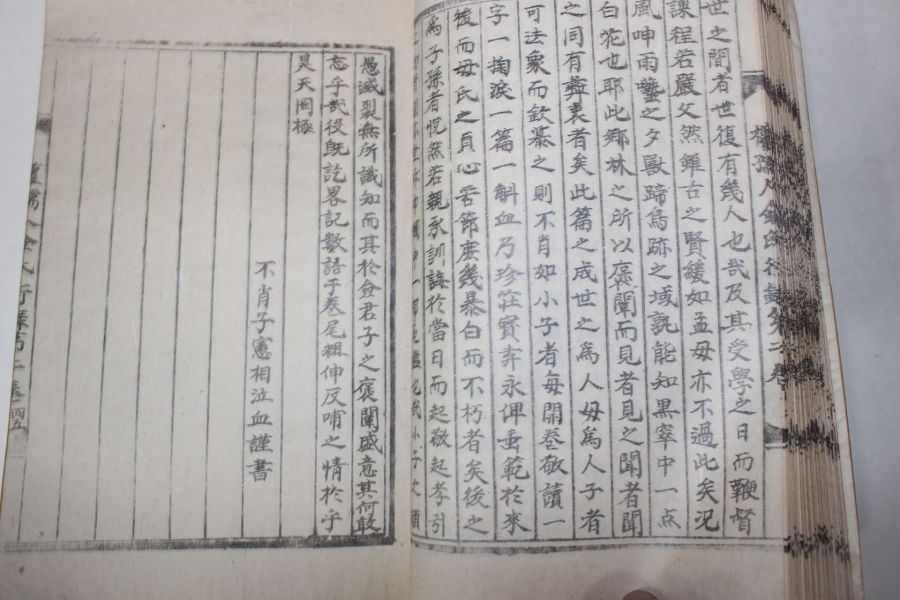 世之間者世復有幾人也哉及其受學之日而鞭督
課程若嚴父然雖古之賢媛如孟母亦不過此矣況
風呻雨蠻之夕獸蹄鳥跡之域孰能知黑窣中一点
白花也耶此鄉林之所以褒闡而見者見之聞者聞
之同有彝衷者矣此篇之成世之爲人母爲人子者
可法象而欽慕之則不肖如小子者每開卷敬讀一
字一掬淚一篇一斛血乃珍莊寶弆永俾垂範於來
後而母氏之貞心苦節庶幾暴白而不朽者矣後之
爲子孫者怳然若親承訓誨於當日而起敬起孝引
小子之頑
愚滅裂無所識知而其於僉君子之褒闡盛意其何敢
忘乎哉役旣訖畧記數語于卷尾粗伸反哺之情於乎
昊天罔極
不肖子憲相泣血謹書